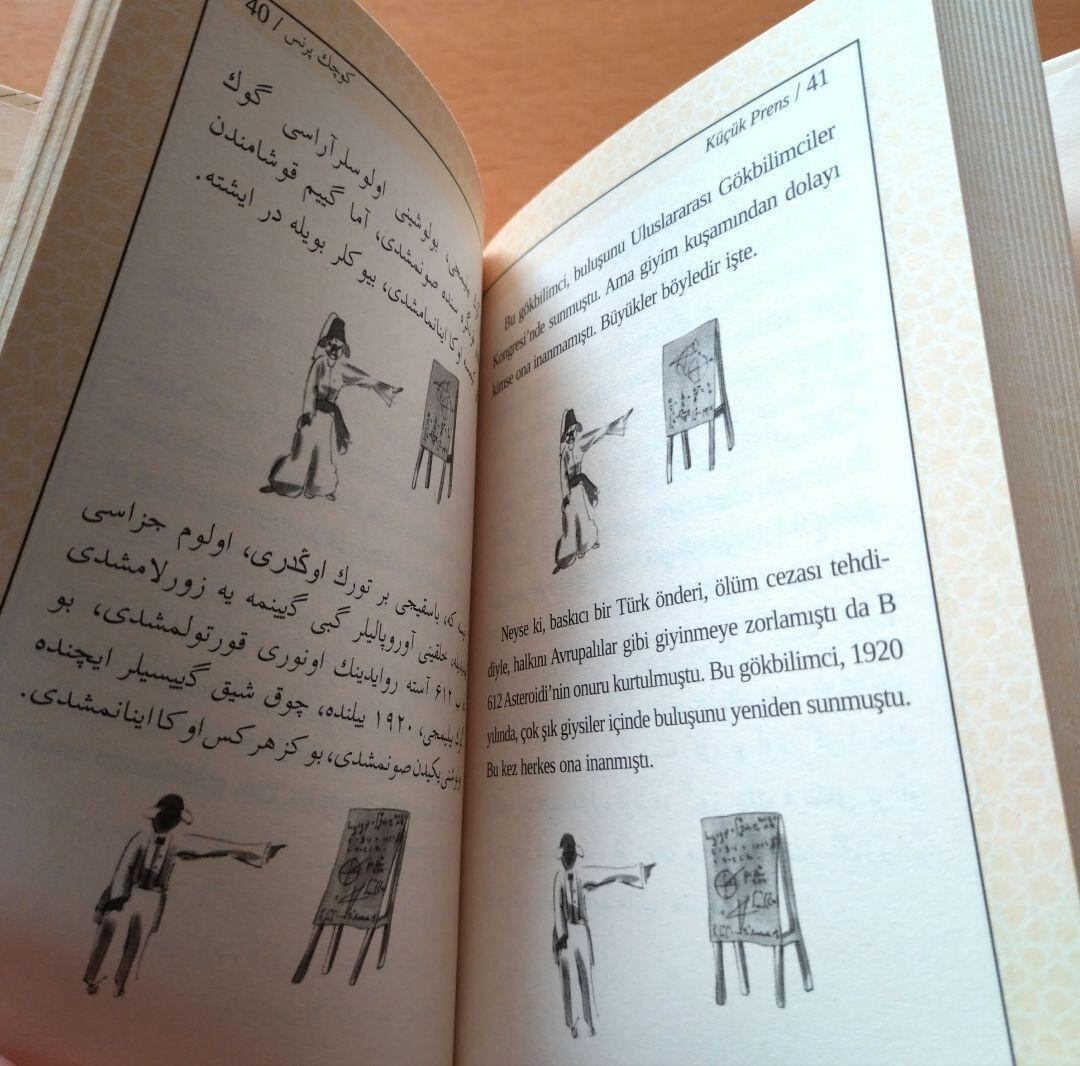 40 / كوچك پرنس
بولوشینی اولوسلرآراسی گوك
سنده صونمشدی، آما گییم قوشامندن
كیمسه اوكا اینانمامشدی، بیوكلر بویله در ایشته.
كه، باسقیجی بر تورك اوڭدری، اولوم جزاسی
خلقینی آوروپالیلر گبی گیینمه یه زورلامشدی
ب ٦١٢ آسته روایدینك اونوری قورتولمشدی، بو
گوك بیلیمجی، ١٩٢٠ ییلنده، چوق شیق گییسیلر ایچنده
یكیدن صونمشدی، بو كز هركس اوكا اینانمشدی.
Küçük Prens / 41
Bu gökbilimci, buluşunu Uluslararası Gökbilimciler
Kongresi'nde sunmuştu. Ama giyim kuşamından dolayı
kimse ona inanmamıştı. Büyükler böyledir işte.
Neyse ki, baskıcı bir Türk önderi, ölüm cezası tehdi-
diyle, halkını Avrupalılar gibi giyinmeye zorlamıştı da B
612 Asteroidi'nin onuru kurtulmuştu. Bu gökbilimci, 1920
yılında, çok şık giysiler içinde buluşunu yeniden sunmuştu.
Bu kez herkes ona inanmıştı.